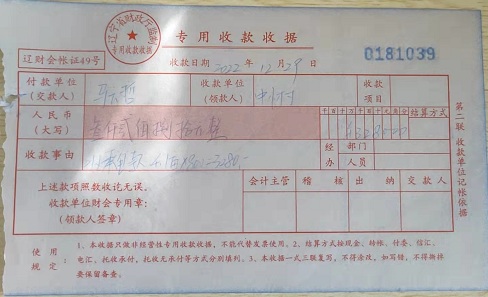 专用收款收据
辽宁省财政厅监制
专用收款收据
辽财会帐证49号
收款日期 2022年12月29日
0181039
付款单位
(交款人)
收款单位
(领款人)
收款
项目
人民币
(大写)
叁仟贰佰捌拾元整
千百十万千百十元角分
结算方式
收款事由
经办
部门
人员
上述款项照数收讫无误。
收款单位财会专用章:
(领款人签章)
会计主管 稽核 出纳 交款人
第二联 收款单位记帐依据
使用规定:
1、本收据只做非经营性专用收款收据,不能代替发票使用。2、结算方式按现金、转帐、付委、信汇、
电汇、托收承付、托收无承付等方式分别填列。3、本收据一式三联复写,不得涂改,如写错,不得撕掉
要保留备查。